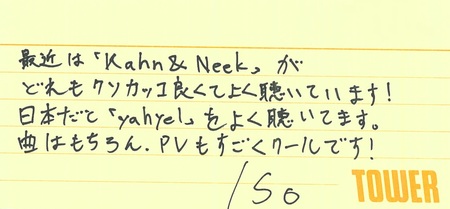 最近は「Kahn & Neek」が
どれもクソカッコ良くてよく聴いています!
日本だと「yahyel」をよく聴いてます。
曲はもちろん、PVもすごくクールです!
/So
TOWER